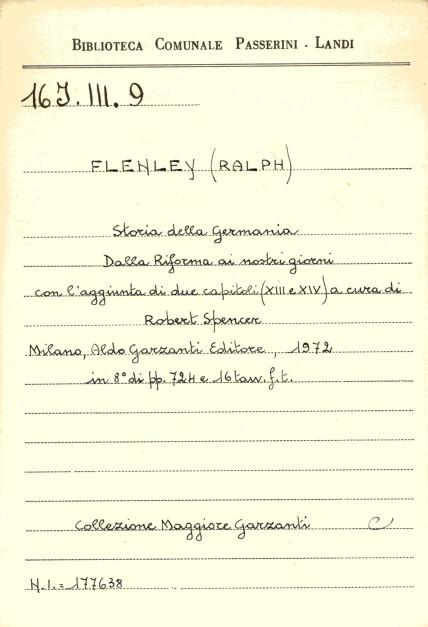 BIBLIOTECA COMUNALE PASSERINI - LANDI
16J.III.9
FLENLEY (RALPH)
Storia della Germania
Dalla Riforma ai nostri giorni
con l'aggiunta di due capitoli (XIII e XIV) a cura di
Robert Spencer
Milano, Aldo Garzanti Editore, 1972
in 8° di pp. 724 e 16 tav. f.t.
Collezione Maggiore Garzanti C
N.I. = 177638